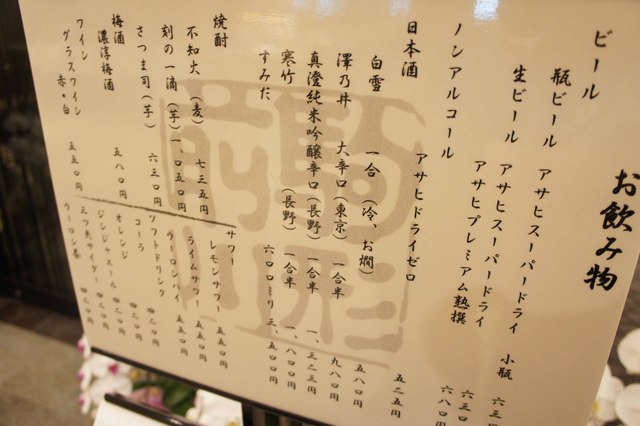 お飲み物
ビール
瓶ビール アサヒスーパードライ 小瓶 六三〇円
生ビール アサヒスーパードライ 六三〇円
アサヒプレミアム熟撰 六八〇円
ノンアルコール
アサヒドライゼロ 五二五円
日本酒
白雪 一合(冷、お燗) 五八〇円
澤乃井 大辛口(東京) 一合半 九八〇円
真澄純米吟醸辛口(長野) 一合半 一、三二三円
寒竹 (長野) 一合半 一、八〇〇円
すみだ 六〇〇ミリ 三、五〇〇円
焼酎
不知火(麦) 七三五円
刻の一滴(芋) 一、〇五〇円
さつま司(芋) 六三〇円
梅酒
濃淳梅酒 五八〇円
ワイン
グラスワイン 赤・白 五五〇円
サワー
レモンサワー 五五〇円
ライムサワー 五五〇円
ウーロンハイ 五五〇円
ソフトドリンク
コーラ 四二〇円
オレンジ 四二〇円
ジンジャーエール 四二〇円
三ツ矢サイダー 四二〇円
ウーロン茶 四二〇円
駒形
前川